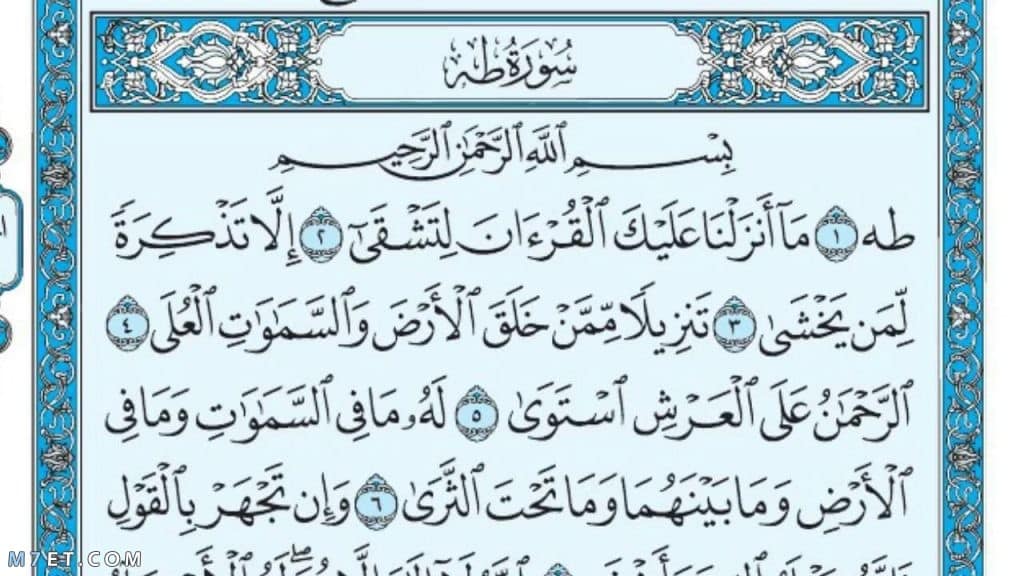 سُورَةُ طه
بِسْمِ ٱللَّهِ ٱلرَّحْمَٰنِ ٱلرَّحِيمِ
طه ١ مَآ أَنزَلْنَا عَلَيْكَ ٱلْقُرْءَانَ لِتَشْقَىٰٓ ٢ إِلَّا تَذْكِرَةً
لِّمَن يَخْشَىٰ ٣ تَنزِيلًا مِّمَّنْ خَلَقَ ٱلْأَرْضَ وَٱلسَّمَٰوَٰتِ ٱلْعُلَى ٤
ٱلرَّحْمَٰنُ عَلَى ٱلْعَرْشِ ٱسْتَوَىٰ ٥ لَهُۥ مَا فِى ٱلسَّمَٰوَٰتِ وَمَا فِى
ٱلْأَرْضِ وَمَا بَيْنَهُمَا وَمَا تَحْتَ ٱلثَّرَىٰ ٦ وَإِن تَجْهَرْ بِٱلْقَوْلِ
M7ET.COM